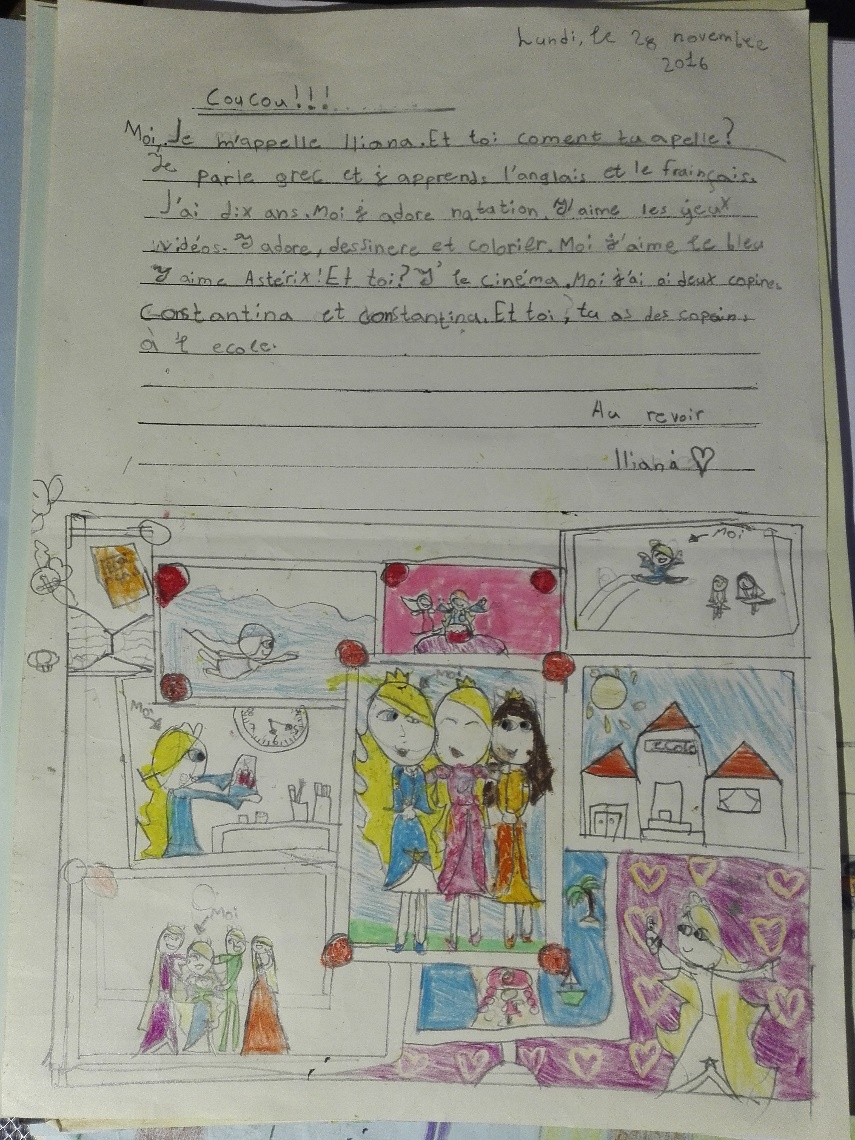 Lundi, le 28 novembre
2016
Coucou!!!
Moi, Je m'appelle Iliana. Et toi coment tu apelle?
Je parle grec et j apprends l'anglais et le frainçais.
J'ai dix ans. Moi j adore natation. J'aime les jeux
vidéos. J adore, dessinere et colorier. Moi j'aime le bleu
J aime Astérix! Et toi? J' le cinéma. Moi j'ai ai deux copines
Constantina et constantina. Et toi, tu as des copains
à l' ecole.
Au revoir
Iliana ♡
Moi
Moi
Moi
ecole
Moi